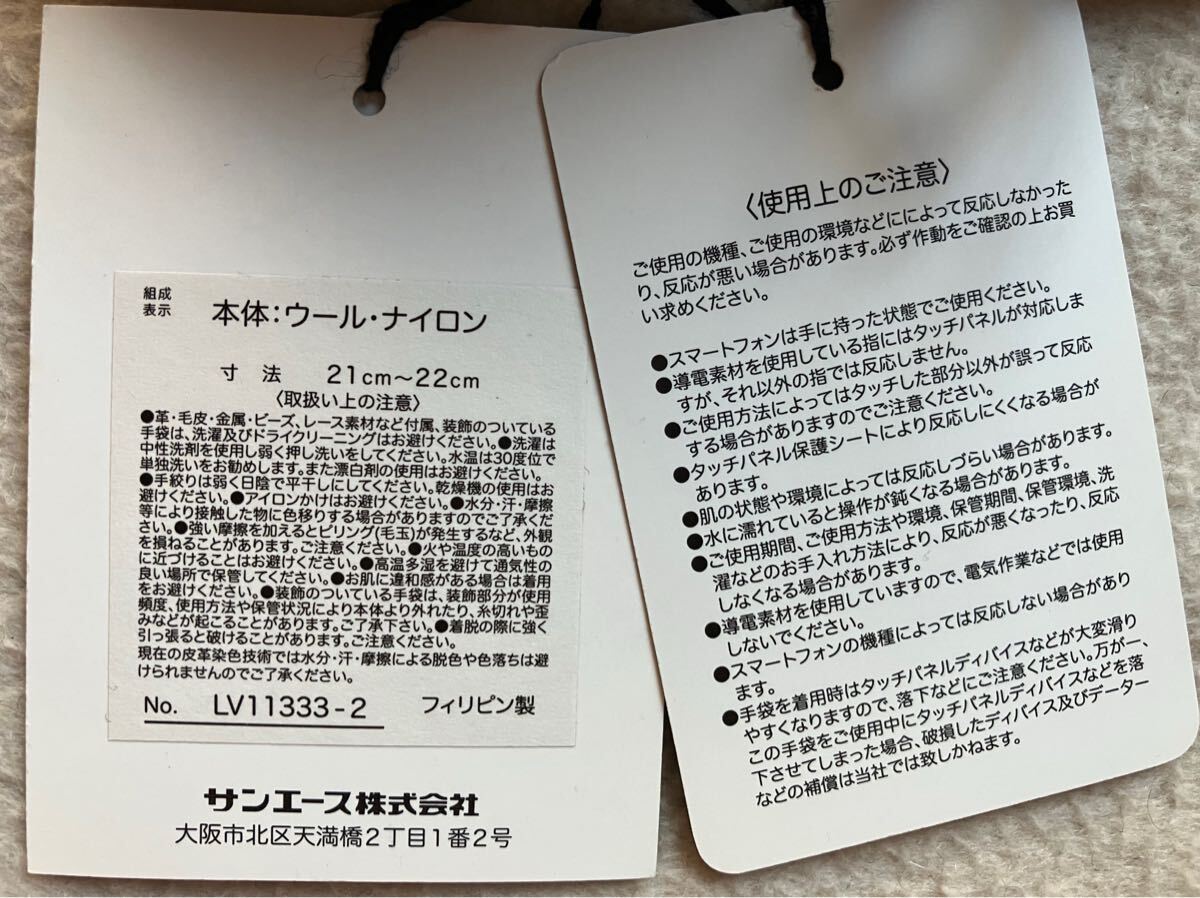 組成
表示
本体:ウール・ナイロン
寸 法 21cm～22cm
〈取扱い上の注意〉
●革・毛皮・金属・ビーズ、レース素材など付属、装飾のついている
手袋は、洗濯及びドライクリーニングはお避けください。●洗濯は
中性洗剤を使用し弱く押し洗いをしてください。水温は30度位で
単独洗いをお勧めします。また漂白剤の使用はお避けください。
●手絞りは弱く日陰で平干しにしてください。乾燥機の使用はお
避けください。●アイロンかけはお避けください。●水分・汗・摩擦
等により接触した物に色移りする場合がありますのでご了承くだ
さい。●強い摩擦を加えるとピリング(毛玉)が発生するなど、外観
を損ねることがあります。ご注意ください。●火や温度の高いもの
に近づけることはお避けください。●高温多湿を避けて通気性の
良い場所で保管してください。●お肌に違和感がある場合は着用
をお避けください。●装飾のついている手袋は、装飾部分が使用
頻度、使用方法や保管状況により本体より外れたり、糸切れや歪
みなどが起こることがあります。ご了承下さい。●着脱の際に強く
引っ張ると破けることがあります。ご注意ください。
現在の皮革染色技術では水分・汗・摩擦による脱色や色落ちは避
けられませんのでご了承ください。
No. LV11333-2 フィリピン製
サンエース株式会社
大阪市北区天満橋2丁目1番2号
〈使用上のご注意〉
ご使用の機種、ご使用の環境などにによって反応しなかった
り、反応が悪い場合があります。必ず作動をご確認の上お買
い求めください。
●スマートフォンは手に持った状態でご使用ください。
●導電素材を使用している指にはタッチパネルが対応しま
すが、それ以外の指では反応しません。
●ご使用方法によってはタッチした部分以外が誤って反応
する場合がありますのでご注意ください。
●タッチパネル保護シートにより反応しにくくなる場合が
あります。
●肌の状態や環境によっては反応しづらい場合があります。
●水に濡れていると操作が鈍くなる場合があります。
●ご使用期間、ご使用方法や環境、保管期間、保管環境、洗
濯などのお手入れ方法により、反応が悪くなったり、反応
しなくなる場合があります。
●導電素材を使用していますので、電気作業などでは使用
しないでください。
●スマートフォンの機種によっては反応しない場合があり
ます。
●手袋を着用時はタッチパネルディバイスなどが大変滑り
やすくなりますので、落下などにご注意ください。万が一、
この手袋をご使用中にタッチパネルディバイスなどを落
下させてしまった場合、破損したディバイス及びデーター
などの補償は当社では致しかねます。